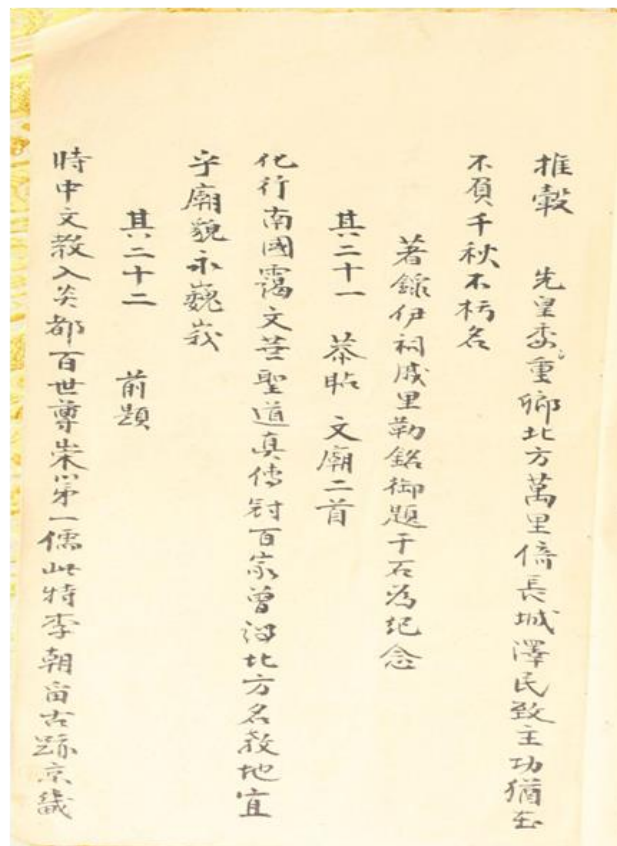 推轂 先皇委重卿北方萬里倚長城澤民致主功猶在
不負千秋不朽名
著錄伊祠戚里勒銘御題于石為紀念
其二十一 恭䀡 文廟二首
化行南國靄文華聖道真傳冠百家曾北方名教地宜
乎廟貌永巍峩
其二十二 前題
時中文教入炎都百世尊崇第一儒此特李朝畱古跡京畿